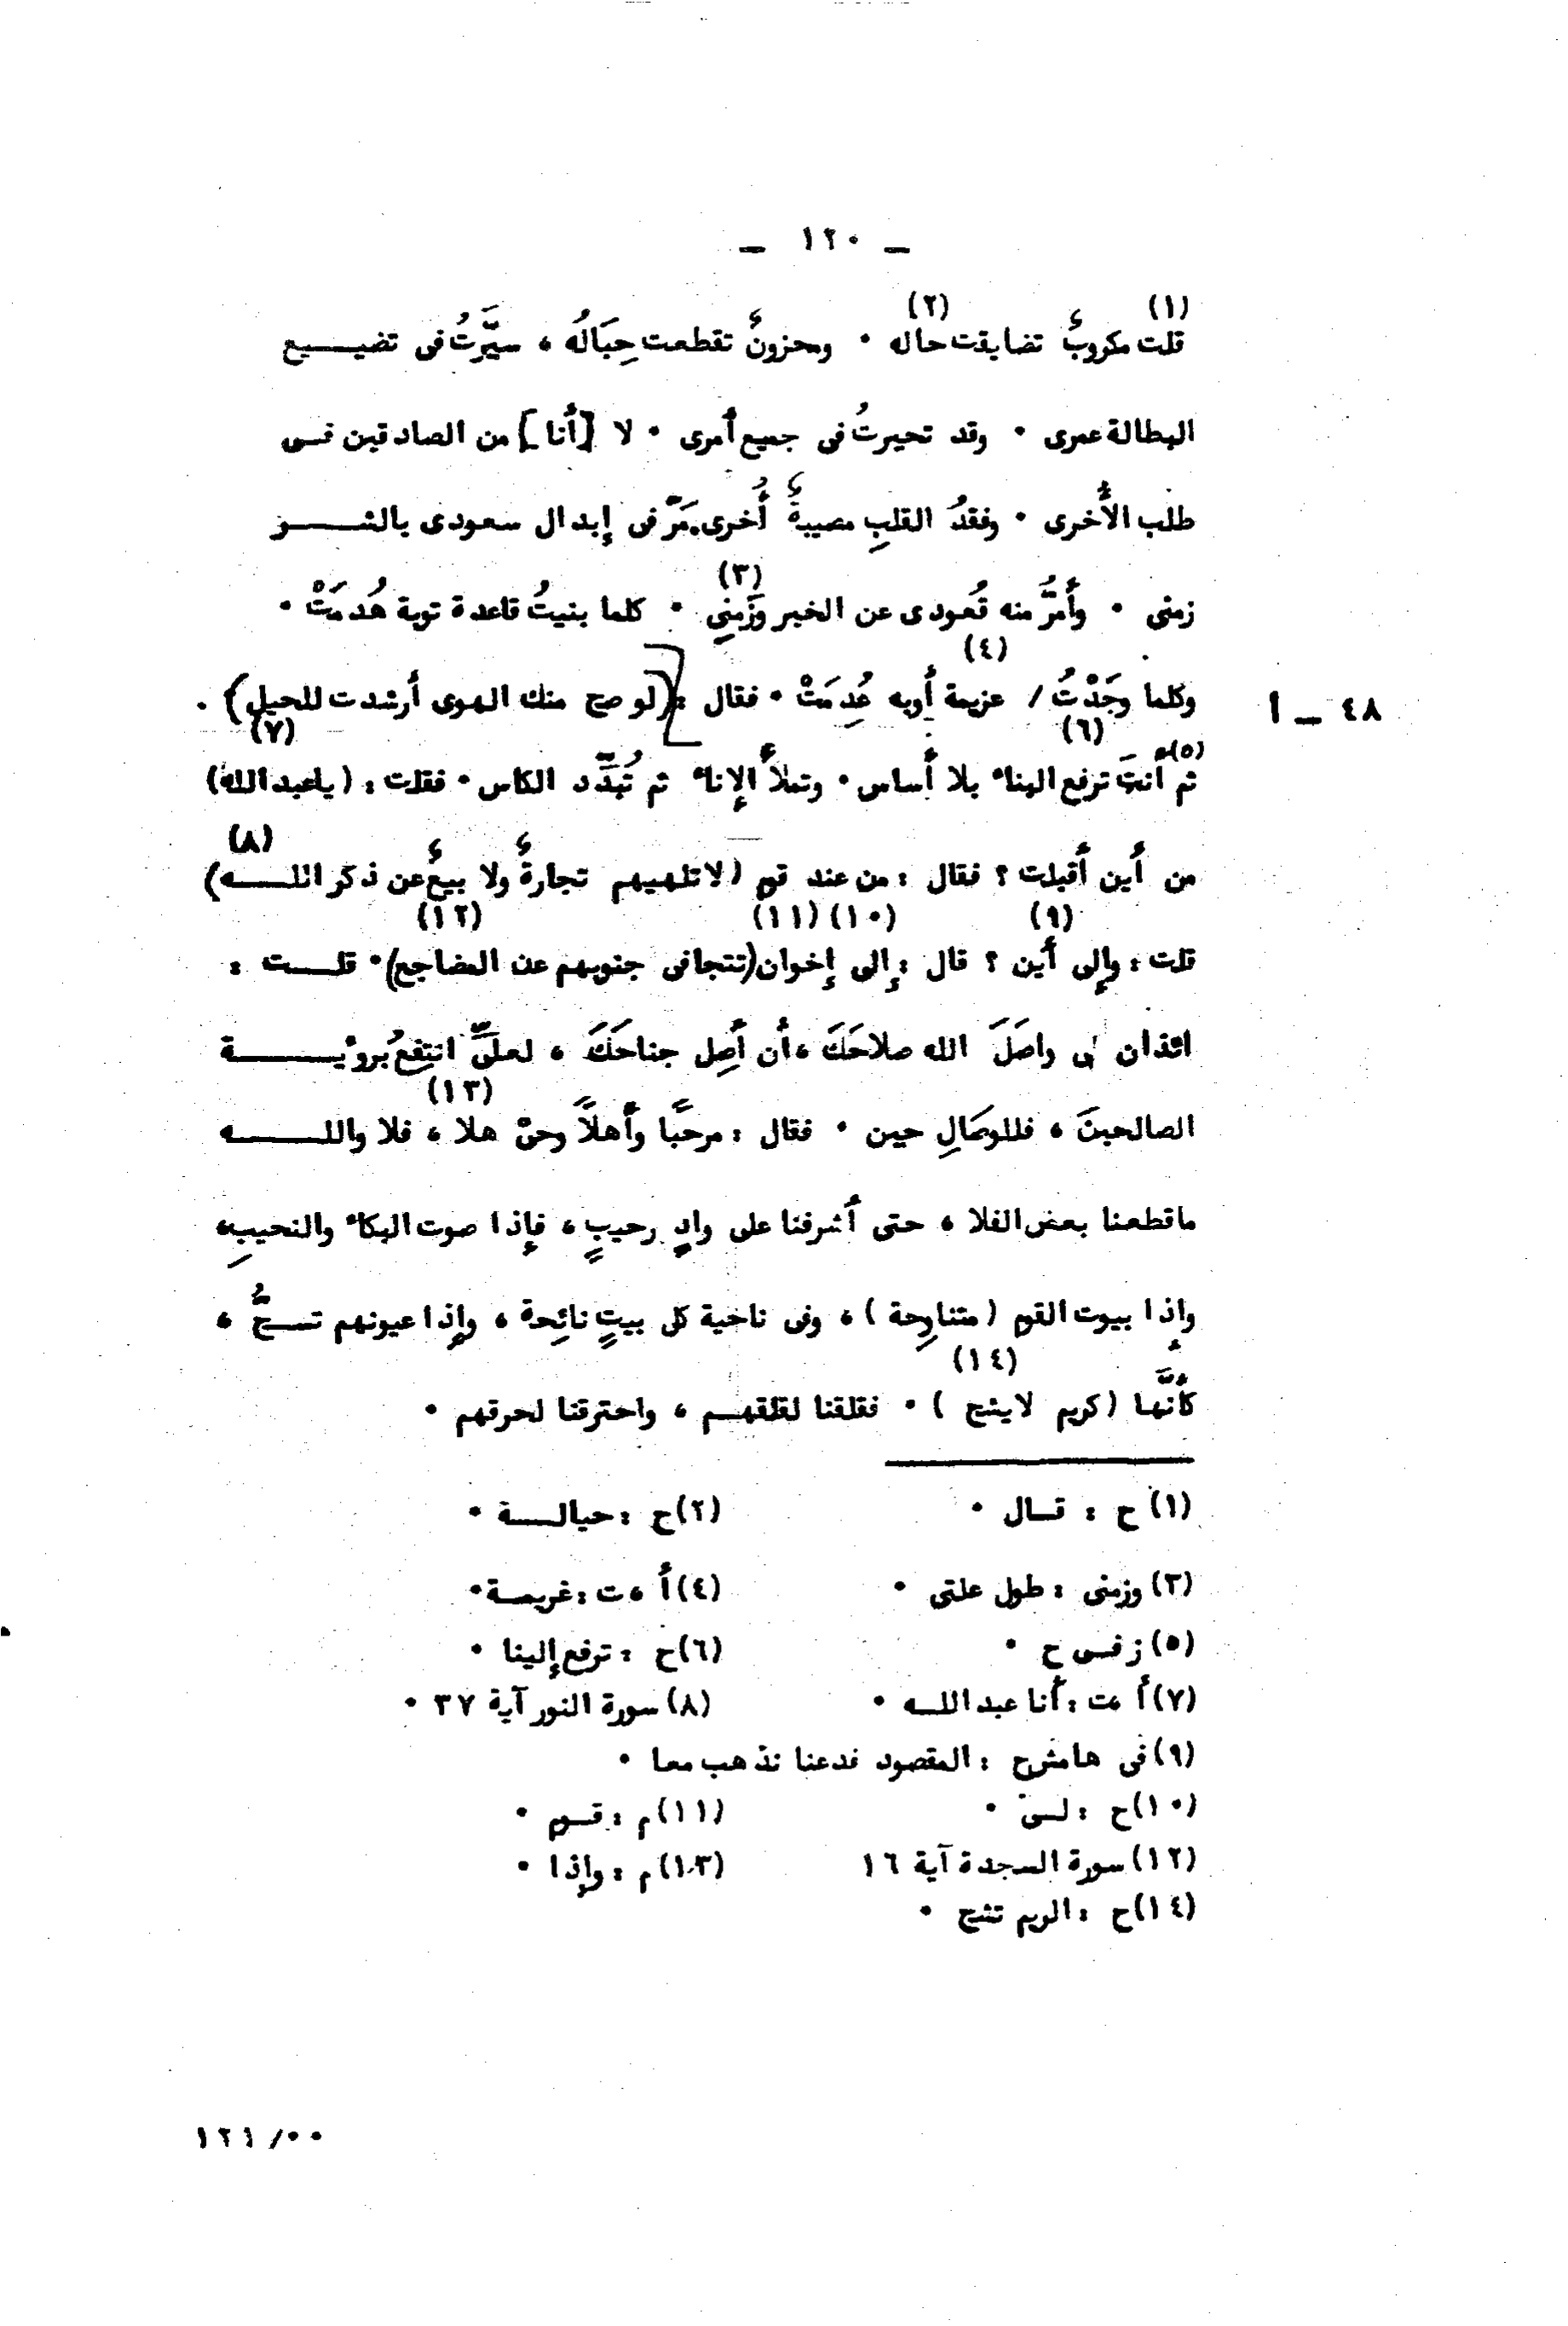 ـ ١٢٠ ـ
(١) (٢)
قلت مكروبٌ تضايقت حاله ٠ ومحزونٌ تقطعت حِبَالُه ، سيَّرتُ فى تضييع
البطالة عمرى ٠ وقد تحيرتُ فى جميع أمرى ٠ لا [أنا] من الصادقين فى
طلب الأُخرى ٠ وفقدُ القلبِ مصيبةٌ أُخرى. مَرّ فى إبدال سعودى بالشر
(٣)
زمنى ٠ وأَمرُّ منه قُعودى عن الخير وَزَمِنِى ٠ كلما بنيتُ قاعدة توبة هُدمَتْ ٠
(٤)
وكلما وجَدْتُ / عزيمة أوبه عُدِمَتْ ٠ فقال : (لو صح منك الهوى أرشدت للحيلِ) .
٤٨ ـ أ
(٥) (٦) (٧)
ثم أنتَ ترفع البناء بلا أساس ٠ وتملأُ الإناء ثم تُبَدِّد الكاس ٠ فقلت : (ياعبدالله)
(٨)
من أين أَقبلت ؟ فقال : من عند قوم (لاتلهيهم تجارةٌ ولا بيعٌ عن ذكر الله)
(٩) (١٠) (١١) (١٢)
قلت : وإِلى أَين ؟ قال : إلى إخوان (تتجافى جنوبهم عن المضاجع) ٠ قلت :
ائذان لى واصَلَ الله صلاحَكَ ، أن أَصِل جناحَكَ ، لعلىِّ انتفِعُ برؤية
(١٣)
الصالحينَ ، فللوصَالِ حين ٠ فقال : مرحبًا وأَهلاً وحىّ هلا ، فلا والله
ماقطعنا بعض الفلا ، حتى أَشرفنا على وادٍ رحيبٍ ، فإذا صوت البكاء والنحيبِ ،
وإذا بيوت القوم (متناوِحة) ، وفى ناحية كل بيتٍ نائِحة ، وإِذا عيونهم تسحُّ ،
(١٤)
كأنَّها (كريم لايشح) ٠ فقلقنا لقلقهم ، واحترقنا لحرقهم ٠
(١) ح : قال ٠ (٢) ح : حيالة ٠
(٣) وزمنى : طول علتى ٠ (٤) أ ، ت : غريمة ٠
(٥) ز فى ح ٠ (٦) ح : ترفع إلينا ٠
(٧) أ ، ت : أنا عبدالله ٠ (٨) سورة النور آية ٣٧ ٠
(٩) فى هامش ح : المقصود فدعنا نذهب معا ٠
(١٠) ح : لى ٠ (١١) م : قوم ٠
(١٢) سورة السجدة آية ١٦ (١٣) م : وإذا ٠
(١٤) ح : الريم تثج ٠
١٢١/٠٠